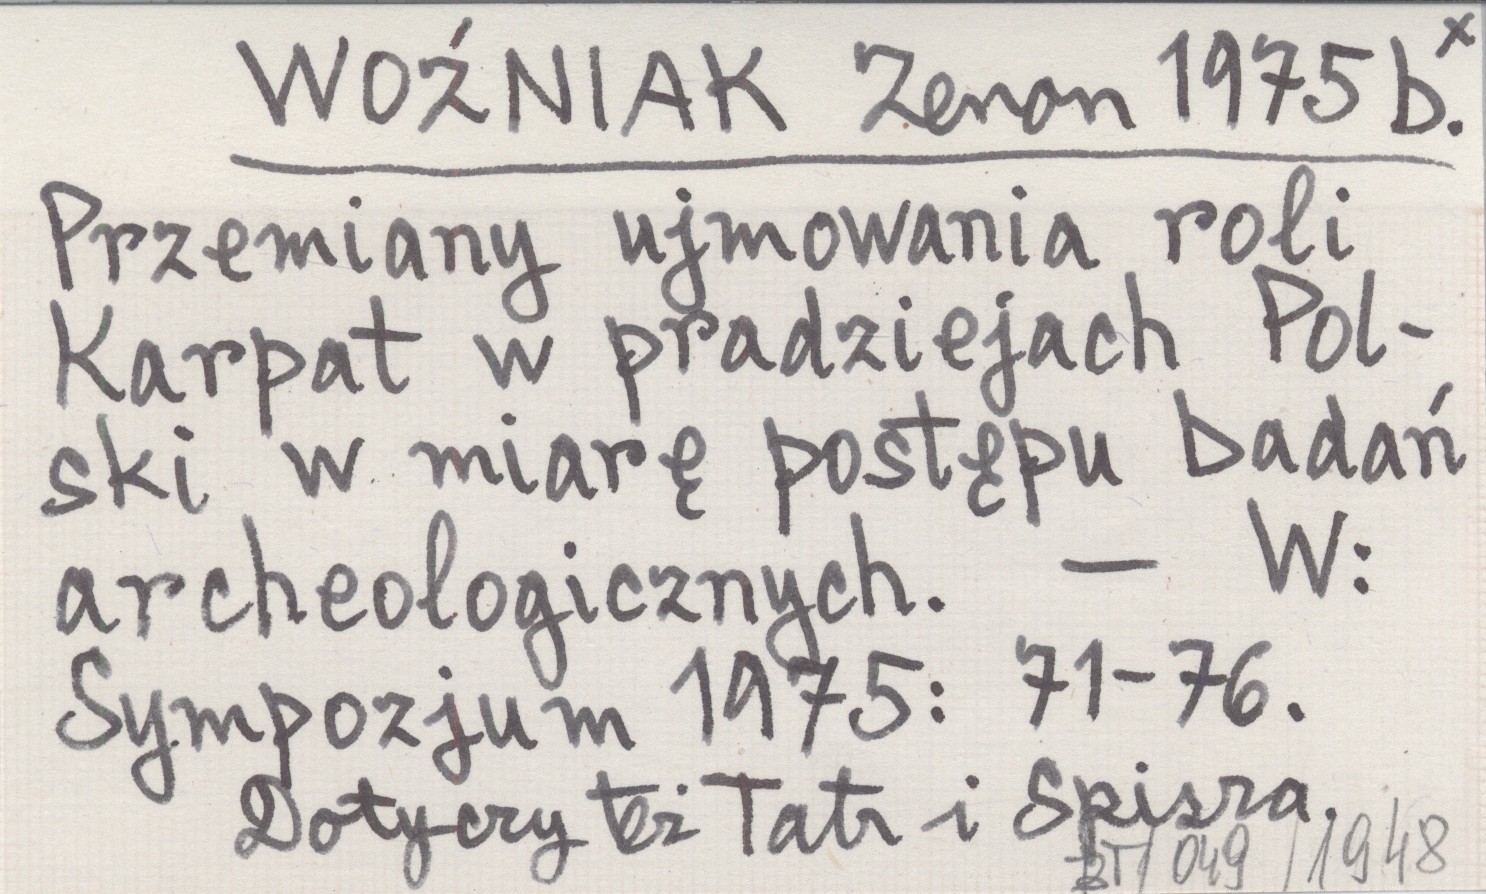 WOŹNIAK Zenon 1975 b.x
Przemiany ujmowania roli
Karpat w pradziejach Pol-
ski w miarę postępu badań
archeologicznych. — W:
Sympozjum 1975: 71-76.
Dotyczy też Tatr i Spisza.
BT/049/1948